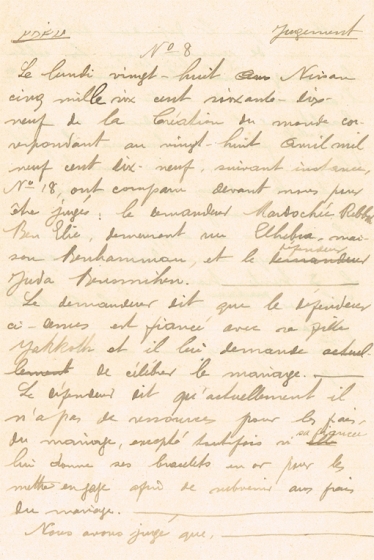 פס״ד Jugement
No 8
Le lundi vingt-huit Nissan
cinq mille six cent soixante-dix-
neuf de la Création du monde cor
respondant au vingt-huit avril mil
neuf cent dix-neuf, suivant instances
No 18, ont comparu devant nous pour
être jugés: le demandeur Mardochée Rebbi
Ben Elie, demeurant rue mai-
son Benhammau, et le défendeur
Juda
Le demandeur dit que le défendeur
ci-dessus est fiancé avec sa fille
Yakkoth et il lui demande actuel-
lement de célébrer le mariage.
Le défendeur dit qu'actuellement il
n'a pas de ressources pour les frais
du mariage, excepté toutefois si sa fiancée
lui donne ses bracelets en or pour les
mettre en gage afin de subvenir aux frais
du mariage.
Nous avons jugé que,